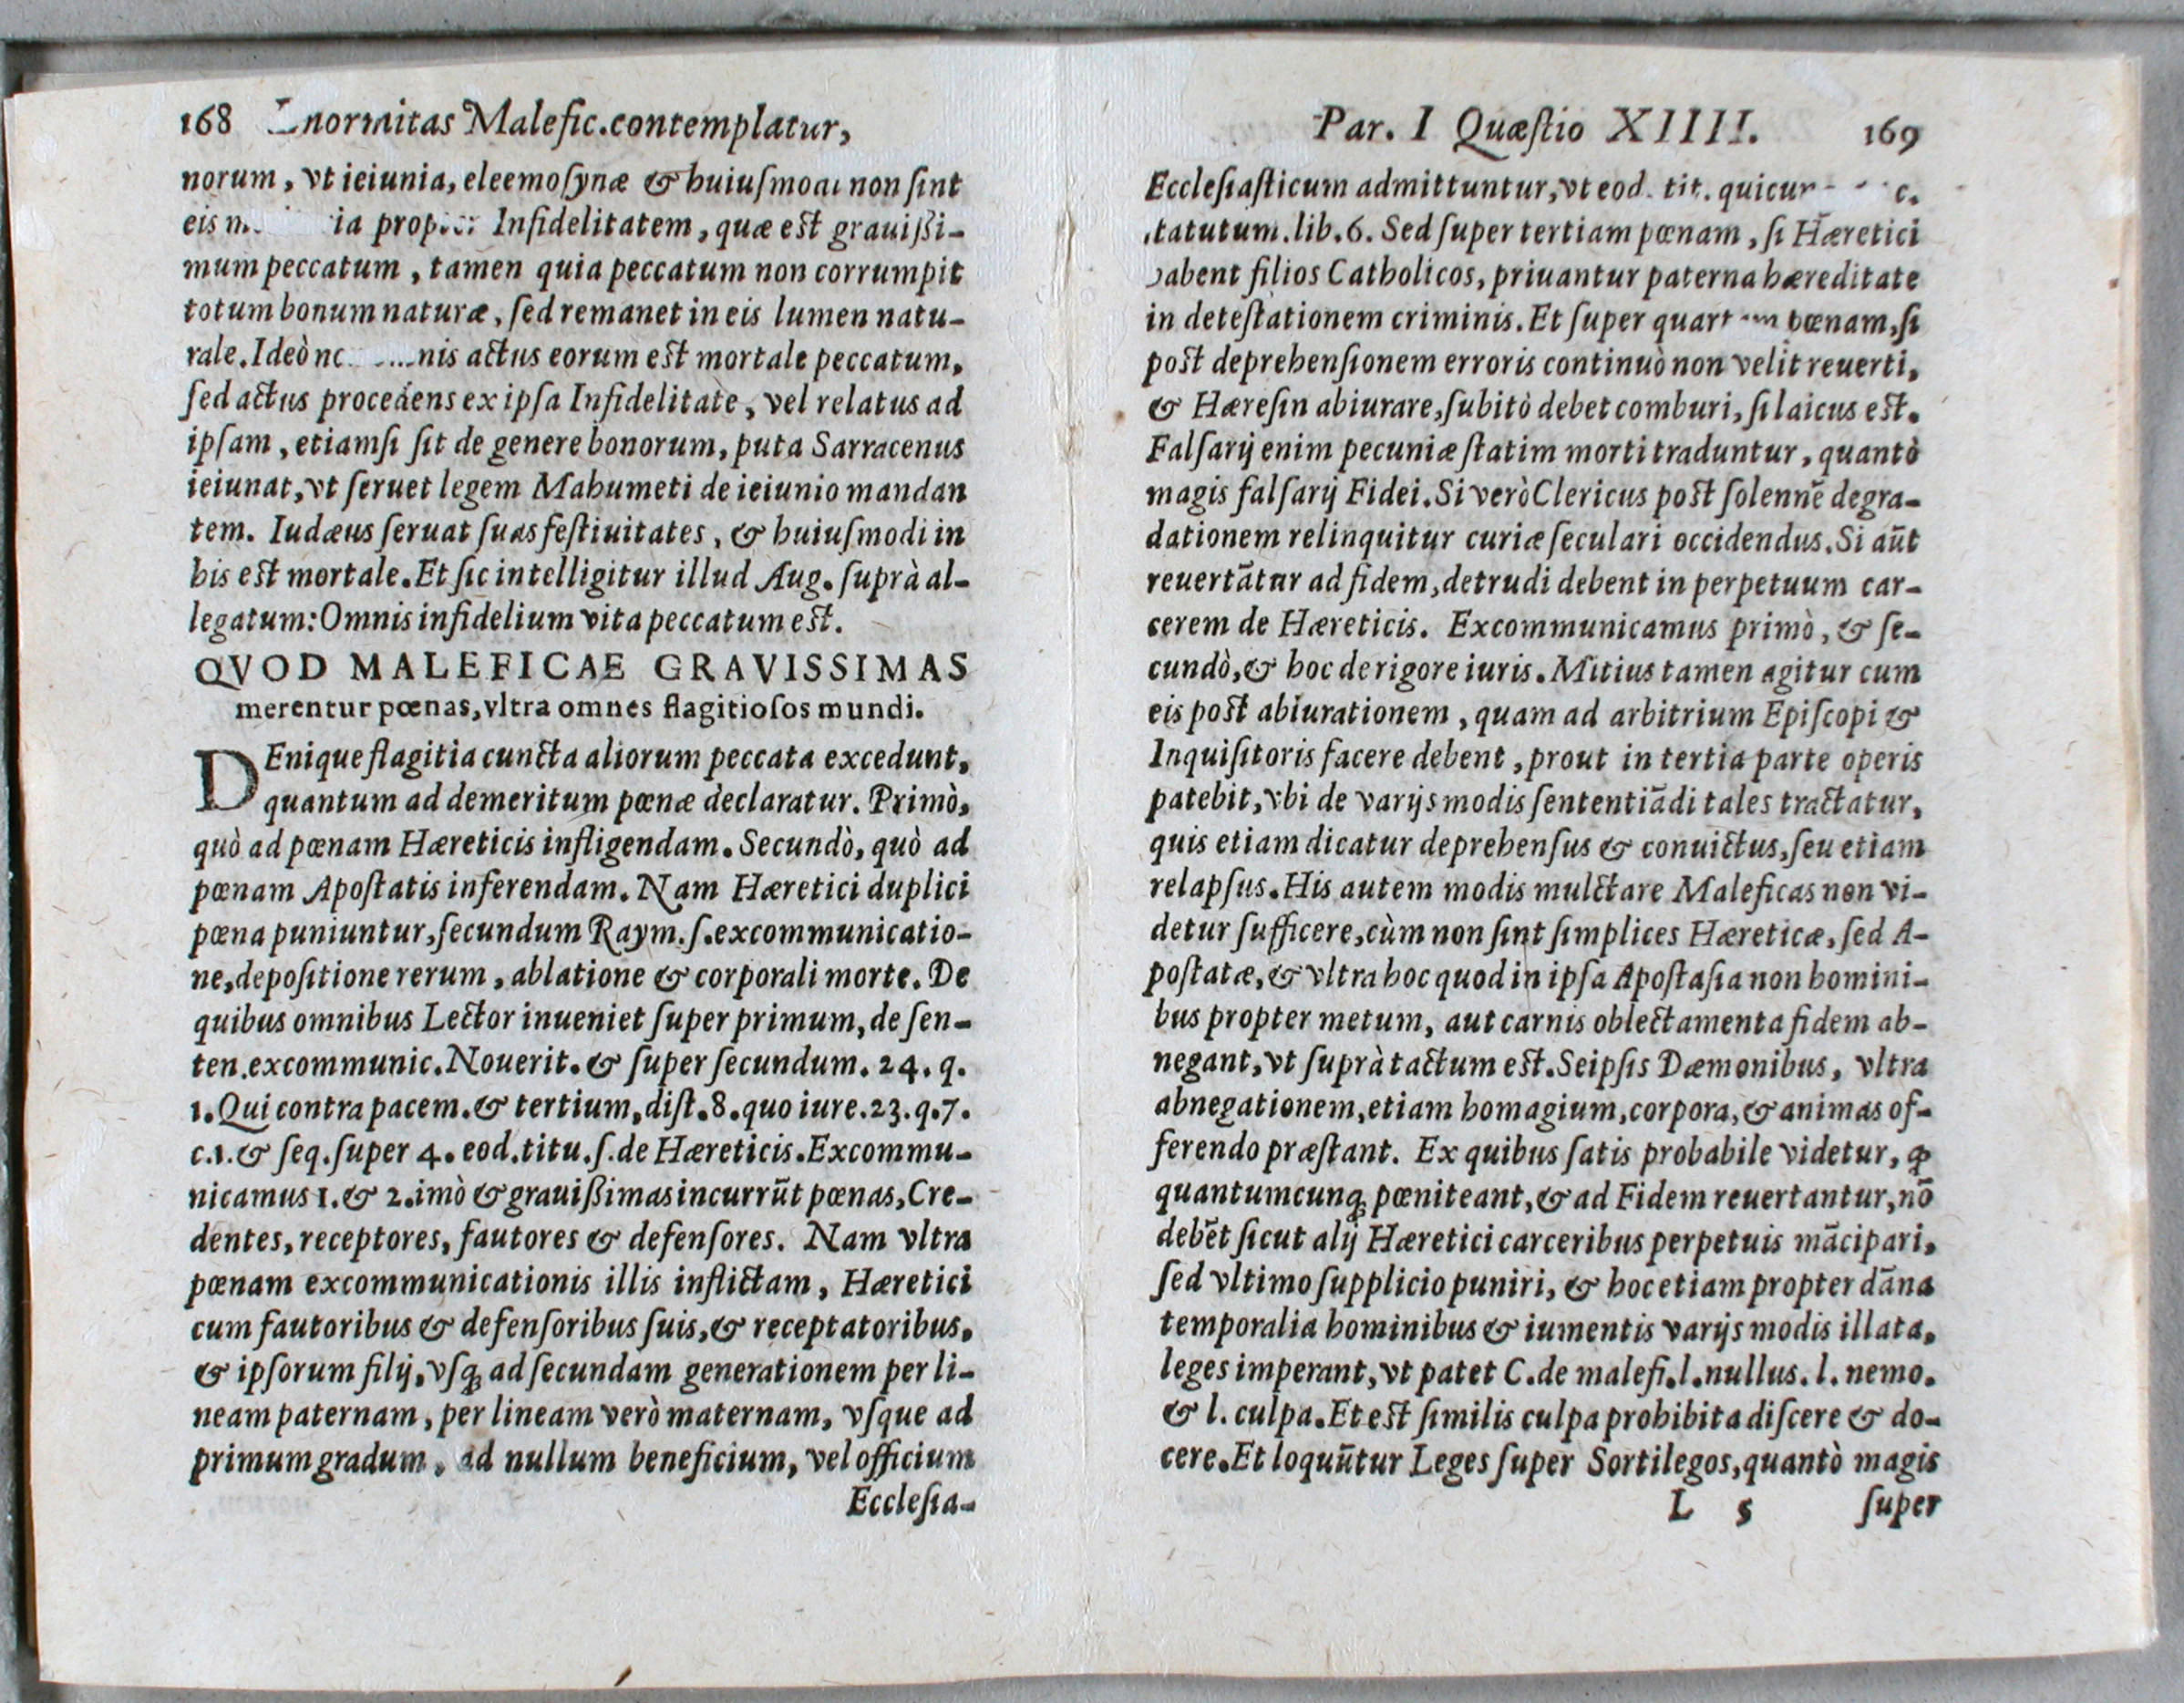 168 Enormitas Malefic.contemplatur,
norum, vt ieiunia, eleemoſynæ & huiuſmodi non ſint
eis propter Infidelitatem, quæ eſt grauißi-
mum peccatum, tamen quia peccatum non corrumpit
totum bonum naturæ, ſed remanet in eis lumen natu-
rale. Ideò actus eorum eſt mortale peccatum,
ſed actus procedens ex ipſa Infidelitate, vel relatus ad
ipſam, etiamſi ſit de genere bonorum, puta Sarracenus
ieiunat, vt ſeruet legem Mahumeti de ieiunio mandan
tem. Iudæus ſeruat ſuas feſtiuitates, & huiuſmodi in
his eſt mortale. Et ſic intelligitur illud Aug. ſuprà al-
legatum: Omnis infidelium vita peccatum eſt.
QVOD MALEFICAE GRAVISSIMAS
merentur pœnas, vltra omnes flagitioſos mundi.
DEnique flagitia cuncta aliorum peccata excedunt,
quantum ad demeritum pœnæ declaratur. Primò,
quò ad pœnam Hæreticis infligendam. Secundò, quò ad
pœnam Apoſtatis inferendam. Nam Hæretici duplici
pœna puniuntur, ſecundum Raym. ſ. excommunicatio-
ne, depoſitione rerum, ablatione & corporali morte. De
quibus omnibus Lector inueniet ſuper primum, de ſen-
ten. excommunic. Nouerit. & ſuper ſecundum. 24. q.
1. Qui contra pacem. & tertium, diſt. 8. quo iure. 23. q. 7.
c. 1. & ſeq. ſuper 4. eod. titu. ſ. de Hæreticis. Excommu-
nicamus 1. & 2. imò & grauißimas incurrūt pœnas, Cre-
dentes, receptores, fautores & defenſores. Nam vltra
pœnam excommunicationis illis inflictam, Hæretici
cum fautoribus & defenſoribus ſuis, & receptatoribus,
& ipſorum filij, vſq; ad ſecundam generationem per li-
neam paternam, per lineam verò maternam, vſque ad
primum gradum, ad nullum beneficium, vel officium
Eccleſia-
Par. I Quæſtio XIIII. 169
Eccleſiaſticum admittuntur, vt eod. tit. c.
ſtatutum. lib. 6. Sed ſuper tertiam pœnam, ſi Hæretici
habent filios Catholicos, priuantur paterna hæreditate
in deteſtationem criminis. Et ſuper quartam pœnam, ſi
poſt deprehenſionem erroris continuò non velit reuerti,
& Hæreſin abiurare, ſubitò debet comburi, ſi laicus eſt.
Falſarij enim pecuniæ ſtatim morti traduntur, quantò
magis falſarij Fidei. Si verò Clericus poſt ſolennē degra-
dationem relinquitur curiæ ſeculari occidendus. Si aūt
reuertātur ad fidem, detrudi debent in perpetuum car-
cerem de Hæreticis. Excommunicamus primò, & ſe-
cundò, & hoc de rigore iuris. Mitius tamen agitur cum
eis poſt abiurationem, quam ad arbitrium Epiſcopi &
Inquiſitoris facere debent, prout in tertia parte operis
patebit, vbi de varijs modis ſententiādi tales tractatur,
quis etiam dicatur deprehenſus & conuictus, ſeu etiam
relapſus. His autem modis mulctare Maleficas non vi-
detur ſufficere, cùm non ſint ſimplices Hæreticæ, ſed A-
poſtatæ, & vltra hoc quod in ipſa Apoſtaſia non homini-
bus propter metum, aut carnis oblectamenta fidem ab-
negant, vt ſuprà tactum eſt. Seipſis Dæmonibus, vltra
abnegationem, etiam homagium, corpora, & animas of-
ferendo præſtant. Ex quibus ſatis probabile videtur, ꝙ
quantumcunq; pœniteant, & ad Fidem reuertantur, nō
debēt ſicut alij Hæretici carceribus perpetuis mācipari,
ſed vltimo ſupplicio puniri, & hoc etiam propter dāna
temporalia hominibus & iumentis varijs modis illata,
leges imperant, vt patet C. de malefi. l. nullus. l. nemo.
& l. culpa. Et eſt ſimilis culpa prohibita diſcere & do-
cere. Et loquūtur Leges ſuper Sortilegos, quantò magis
L 5 ſuper